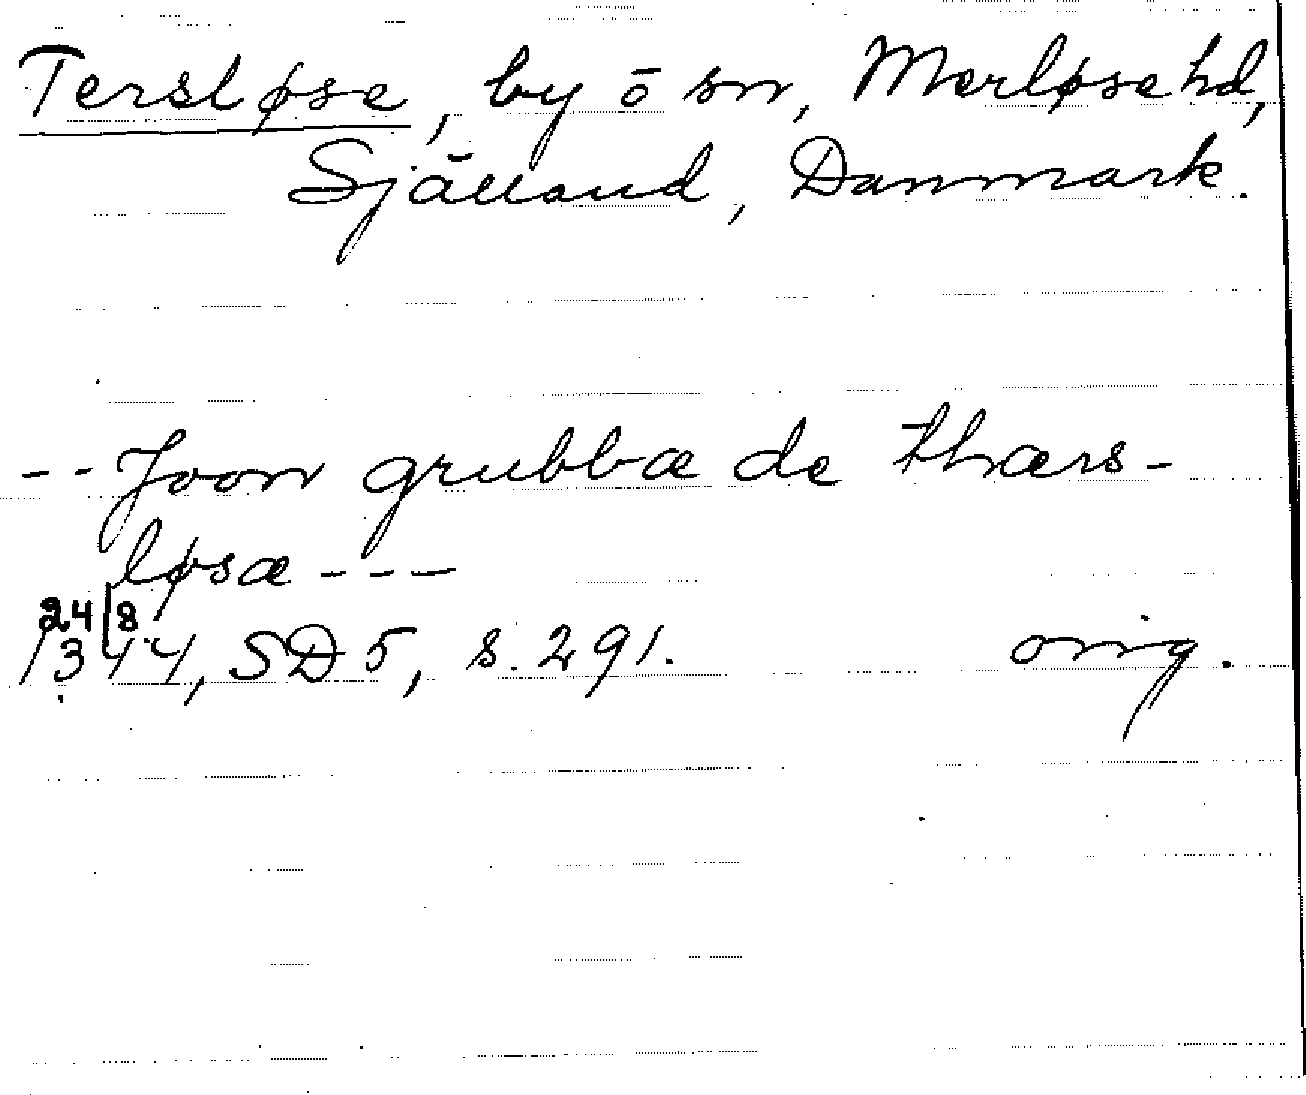 Tersløse, by ō sn, Merløse hd,
Själland, Danmark.
-- Joon grubbæ de thærs-
løsæ ---
24/8
1344, SD 5, s. 291. orig.